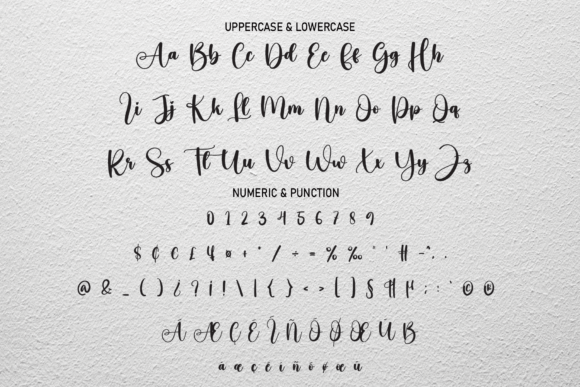 UPPERCASE & LOWERCASE
Aa Bb Cc Dd Ee Ff Gg Hh
Ii Jj Kk Ll Mm Nn Oo Pp Qq
Rr Ss Tt Uu Vv Ww Xx Yy Zz
NUMERIC & PUNCTION
0 1 2 3 4 5 6 7 8 9
$ ¢ € £ ¥ ¤ + * / ÷ = % ‰ " ' # - ~ , .
@ & _ ( ) ¿ ? ¡ ! \ | { } < > [ ] § ¶ ; : © ®
À Æ Ç É Î Ñ Ö Ø Œ Ú
à æ ç é î ñ ö ø œ ü